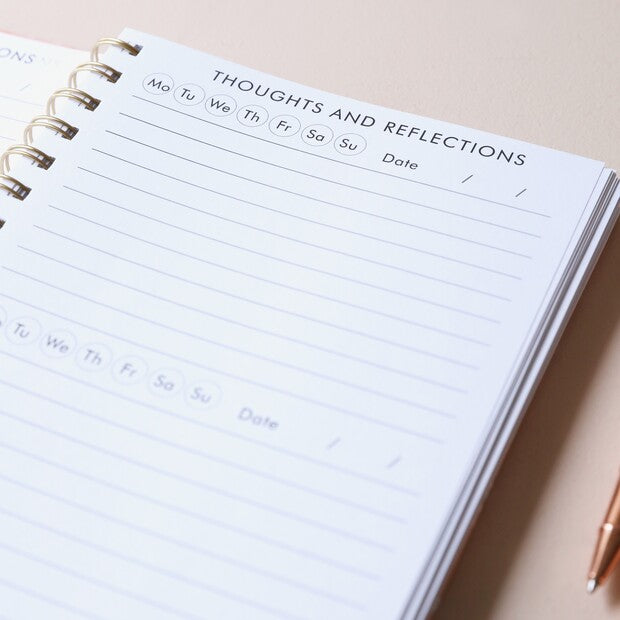 ONS
THOUGHTS AND REFLECTIONS
Mo Tu We Th Fr Sa Su Date / /
Tu We Th Fr Sa Su Date / /